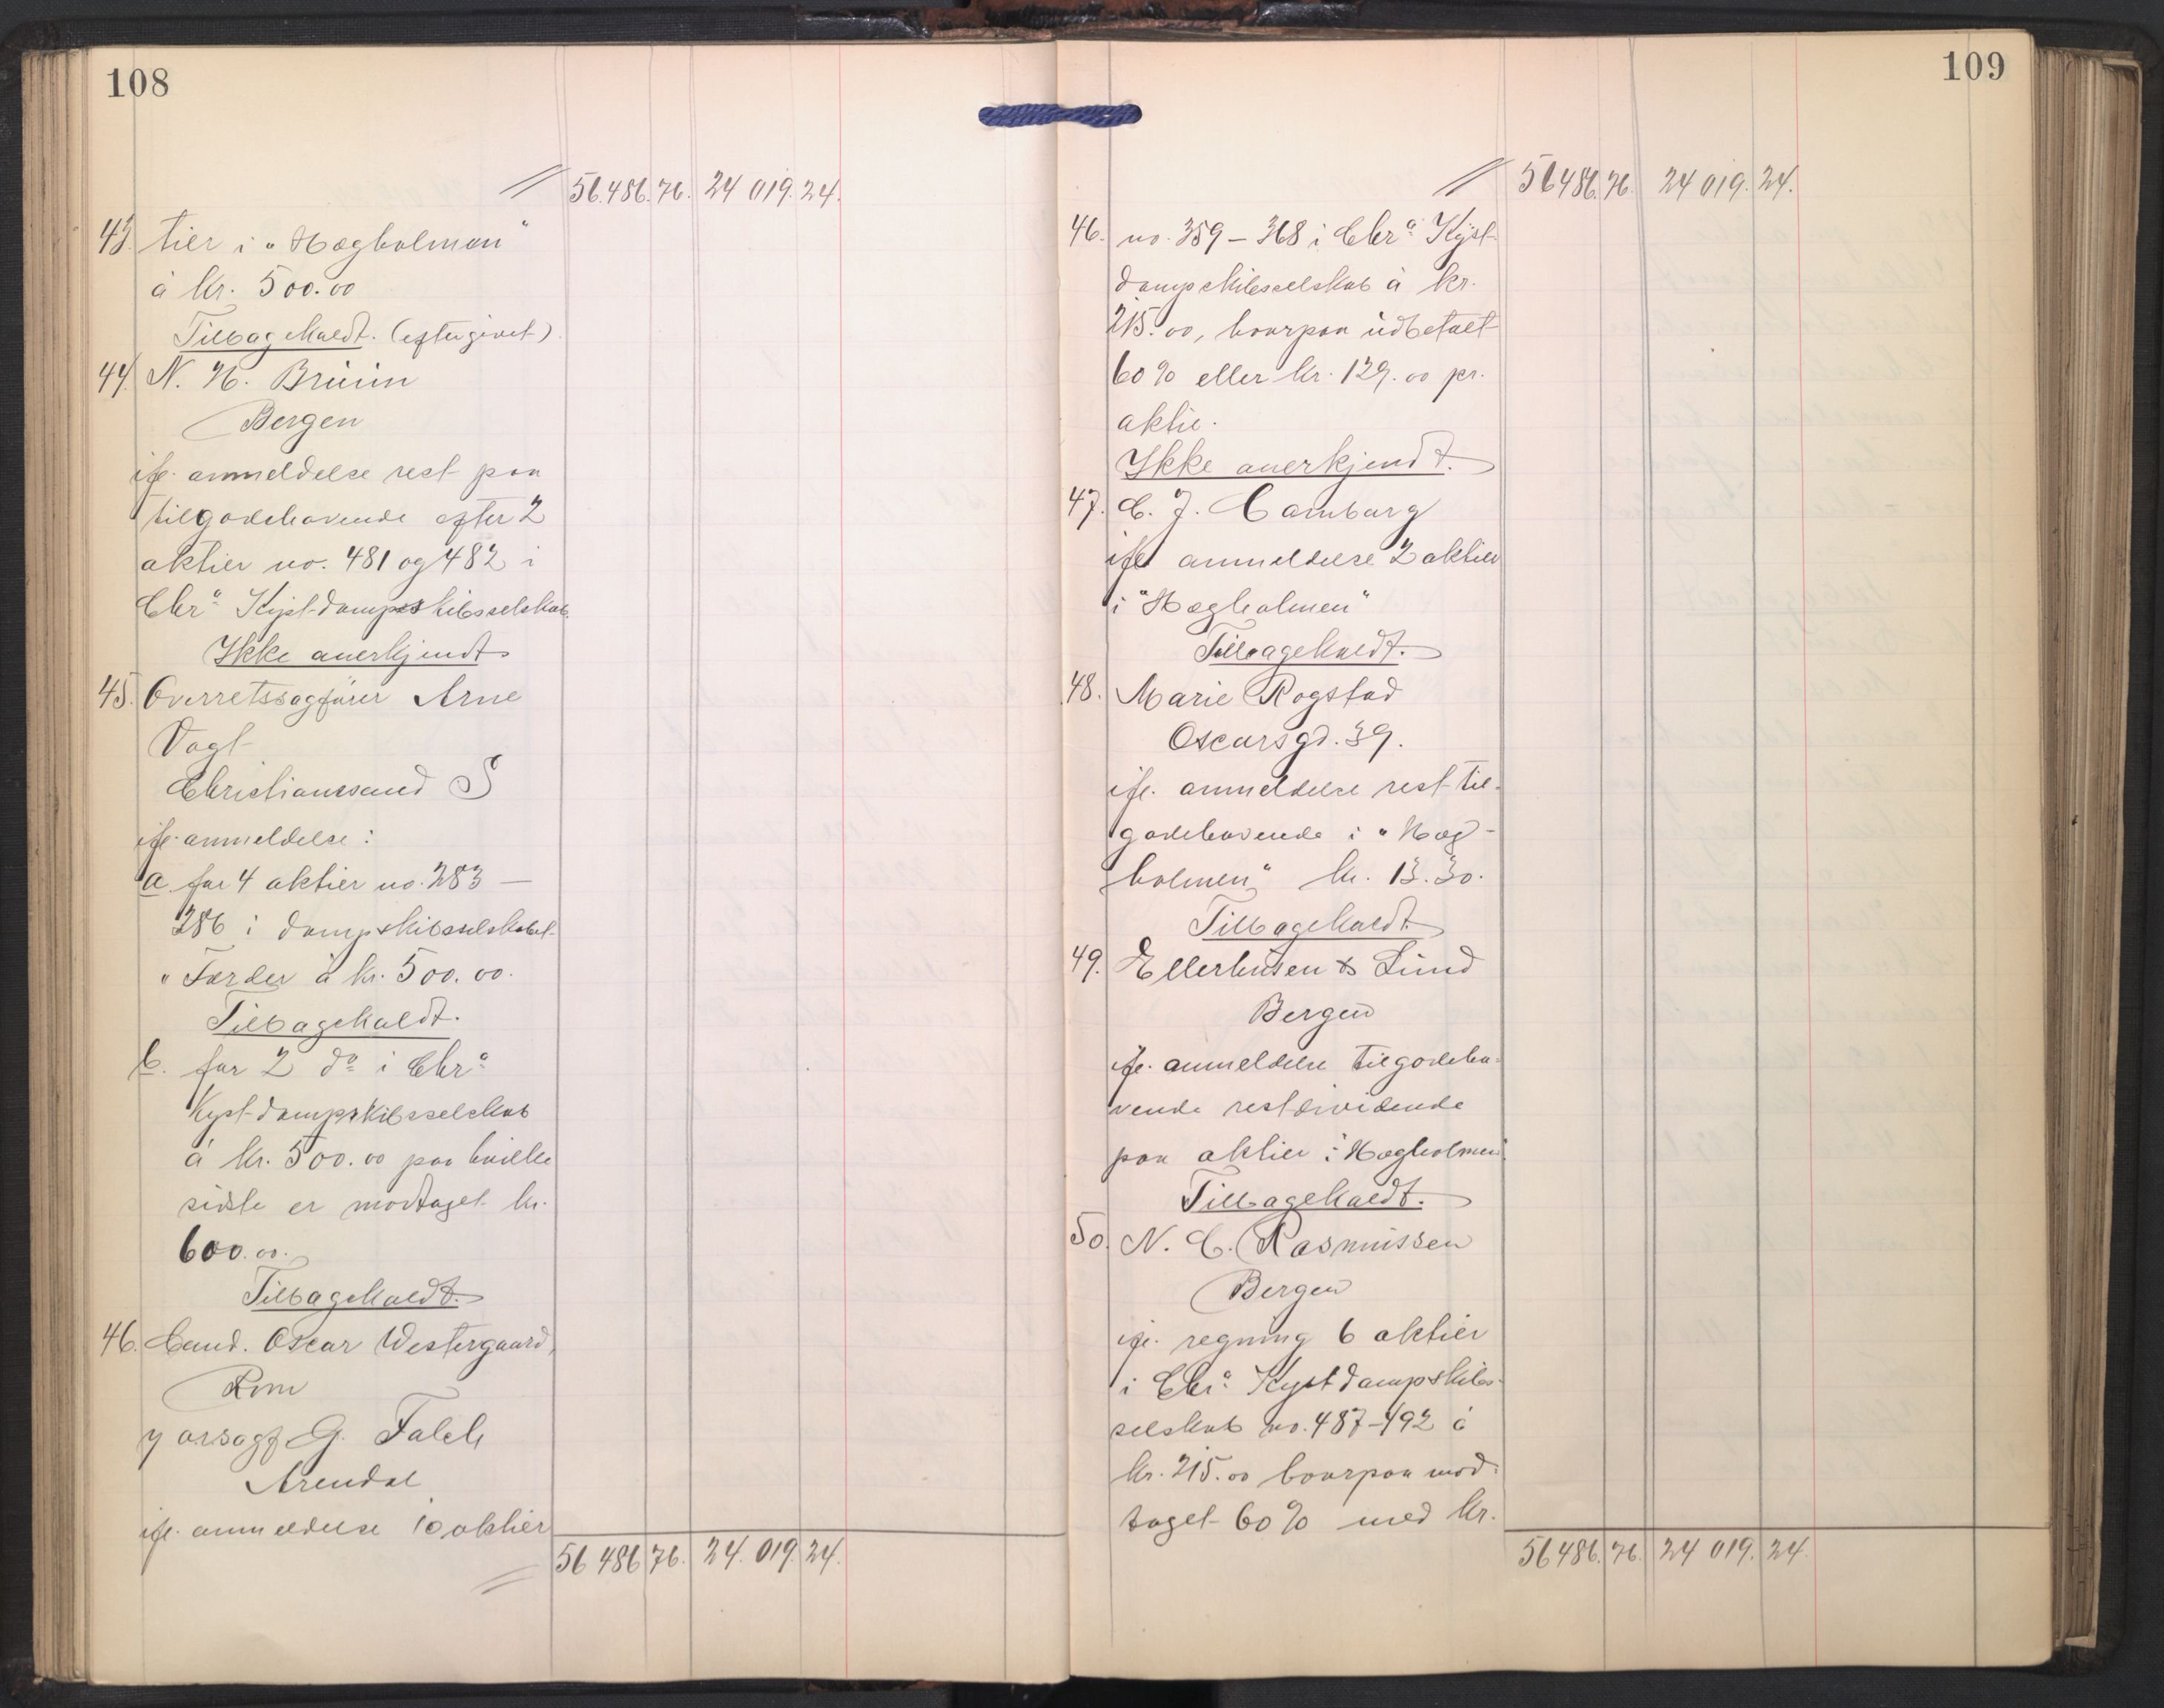 108
56.486.76. 24 019.24.
43. tier i "Hægholmen"
à kr. 500.00
Tilbagekaldt. (eftergivet).
44. N. H. Bruun
Bergen
ifl. anmeldelse rest paa
tilgodehavende efter 2
aktier no. 481 og 482 i
Chra Kyst-dampskibsselskab.
Ikke anerkjendt
45. Overretssagfører Arne
Vogt
Christianssand S
ifl. anmeldelse:
a. for 4 aktier no. 283 —
286 i dampskibsselskabet
"Færder à kr. 500.00.
Tilbagekaldt.
b. for 2 do i Chra
Kyst-dampskibsselskab
à kr. 500.00 paa hvilke
sidste er modtaget kr.
600.00.
Tilbagekaldt.
46. Cand. Oscar Westergaard,
Rom
v orsagf G. Falch
Arendal
ifl. anmeldelse 10 aktier
56 486 76. 24. 019. 24.
109
56486.76. 24 019. 24.
46. no. 359 – 368 i Chra Kyst-
dampskibsselskab à kr.
215.00, hvorpaa udbetalt
60 % eller kr. 129.00 pr.
aktie.
Ikke anerkjendt.
47. C. J. Hamburg
ifl anmeldelse 2 aktier
i "Hægholmen"
Tilbagekaldt.
48. Marie Rogstad
Oscarsgd. 39.
ifl. anmeldelse rest til-
godehavende i "Hæg-
holmen" kr. 13.30.
Tilbagekaldt.
49. Ellerhusen & Lund
Bergen
ifl. anmeldelse tilgodeha-
vende restdividende
paa aktier i "Hægholmen".
Tilbagekaldt.
50. N. C. Rasmussen
Bergen
ifl. regning 6 aktier
i Chra Kyst dampskibs-
selskab no. 487–492 à
kr. 215.00 hvorpaa mod-
taget 60 % med kr.
56486. 76. 24 019. 24.